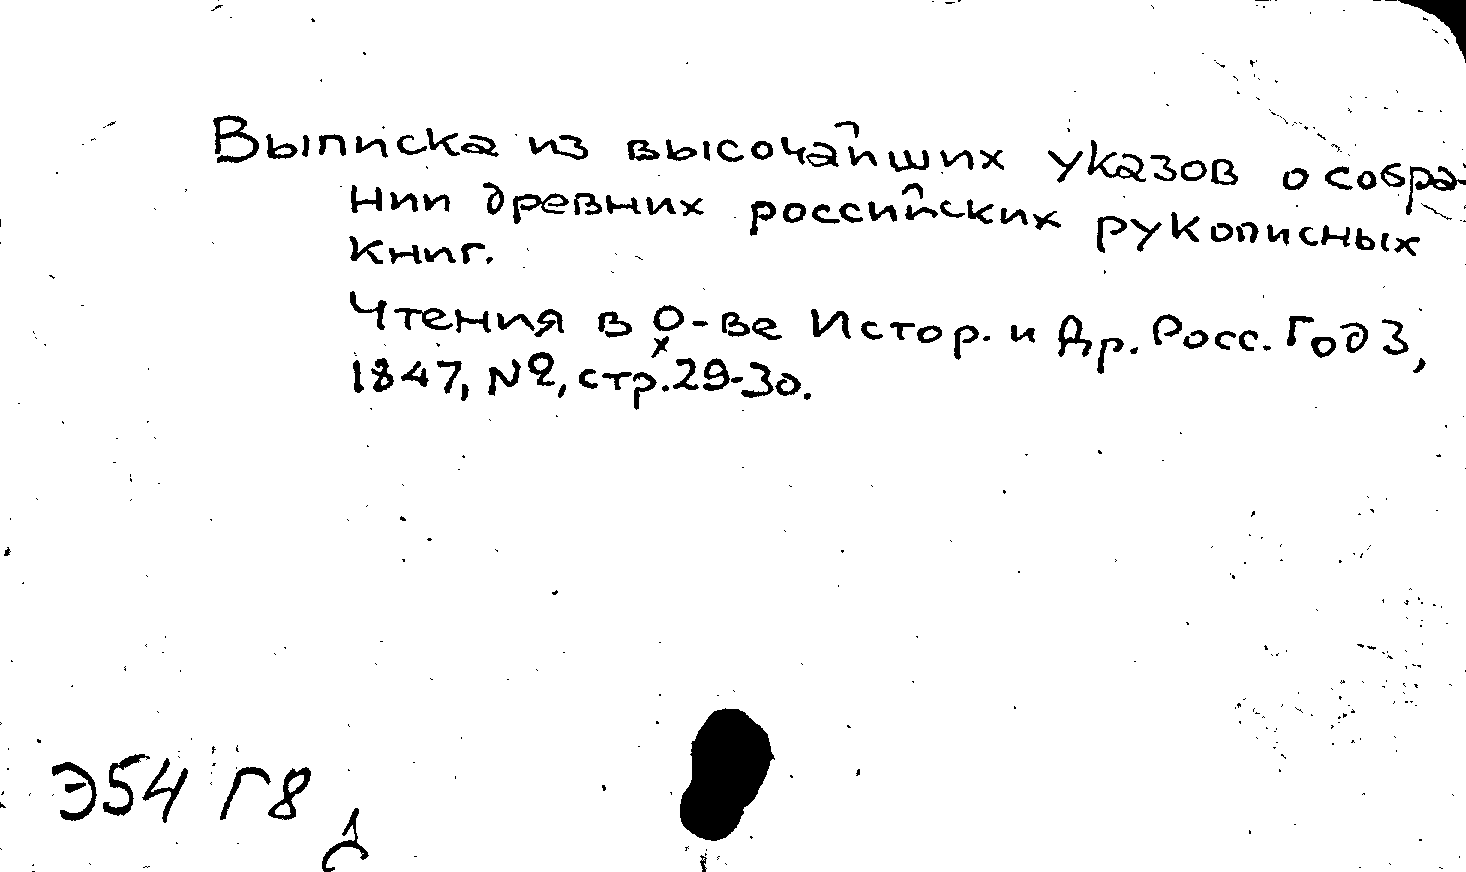 Выписка из высочайших указов о собра-
нии древних российских рукописных
книг.
Чтения в О-ве Истор. и Др. Росс. Год 3,
1847, №2, стр. 29-30.
Э54 Г8